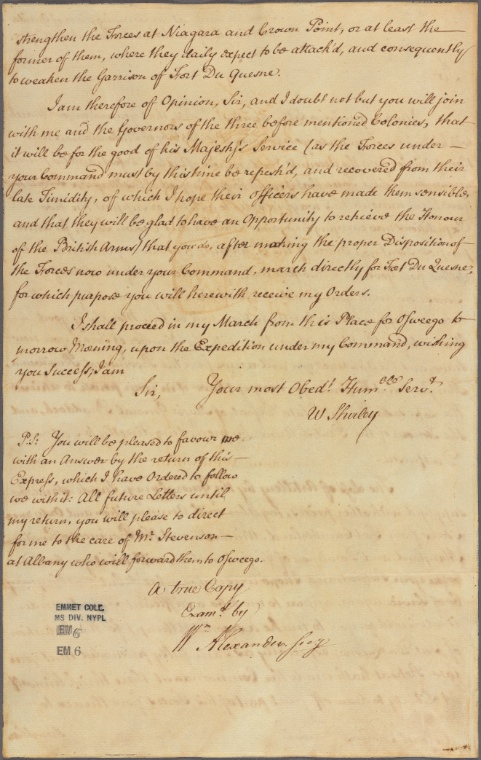 strengthen the Forces at Niagara and Crown Point, or at least the
former of them, where they daily expect to be attack'd, and consequently
to weaken the Garrison of Fort Du Quesne.
I am therefore of Opinion, Sir, and I doubt not but you will join
with me and the Governors of the three before mentioned Colonies, that
it will be for the good of his Majesty's Service (as the Forces under
your Command must by this time be refresh'd, and recovered from their
late Timidity, of which I hope their Officers have made them sensible,
and that they will be glad to have an Opportunity to retrieve the Honour
of the British Arms) that you do, after making the proper Disposition of
the Forces now under your Command, march directly for Fort Du Quesne,
for which purpose you will herewith receive my Orders.
I shall proceed in my March from this Place for Oswego to
morrow Morning, upon the Expedition under my Command, wishing
you Success, I am
Sir, Your most Obedt. Humble Servt.
W Shirley
P.S. You will be pleased to favour me
with an Answer by the return of this
Express, which I have Ordered to follow
me with it: All future Letters until
my return, you will please to direct
for me to the care of Mr. Stevenson
at Albany who will forward them to Oswego.
A true Copy
Examd. by
Wm Alexander Secy
EMMET COLL.
MS DIV. NYPL
EM 6
EM. 6